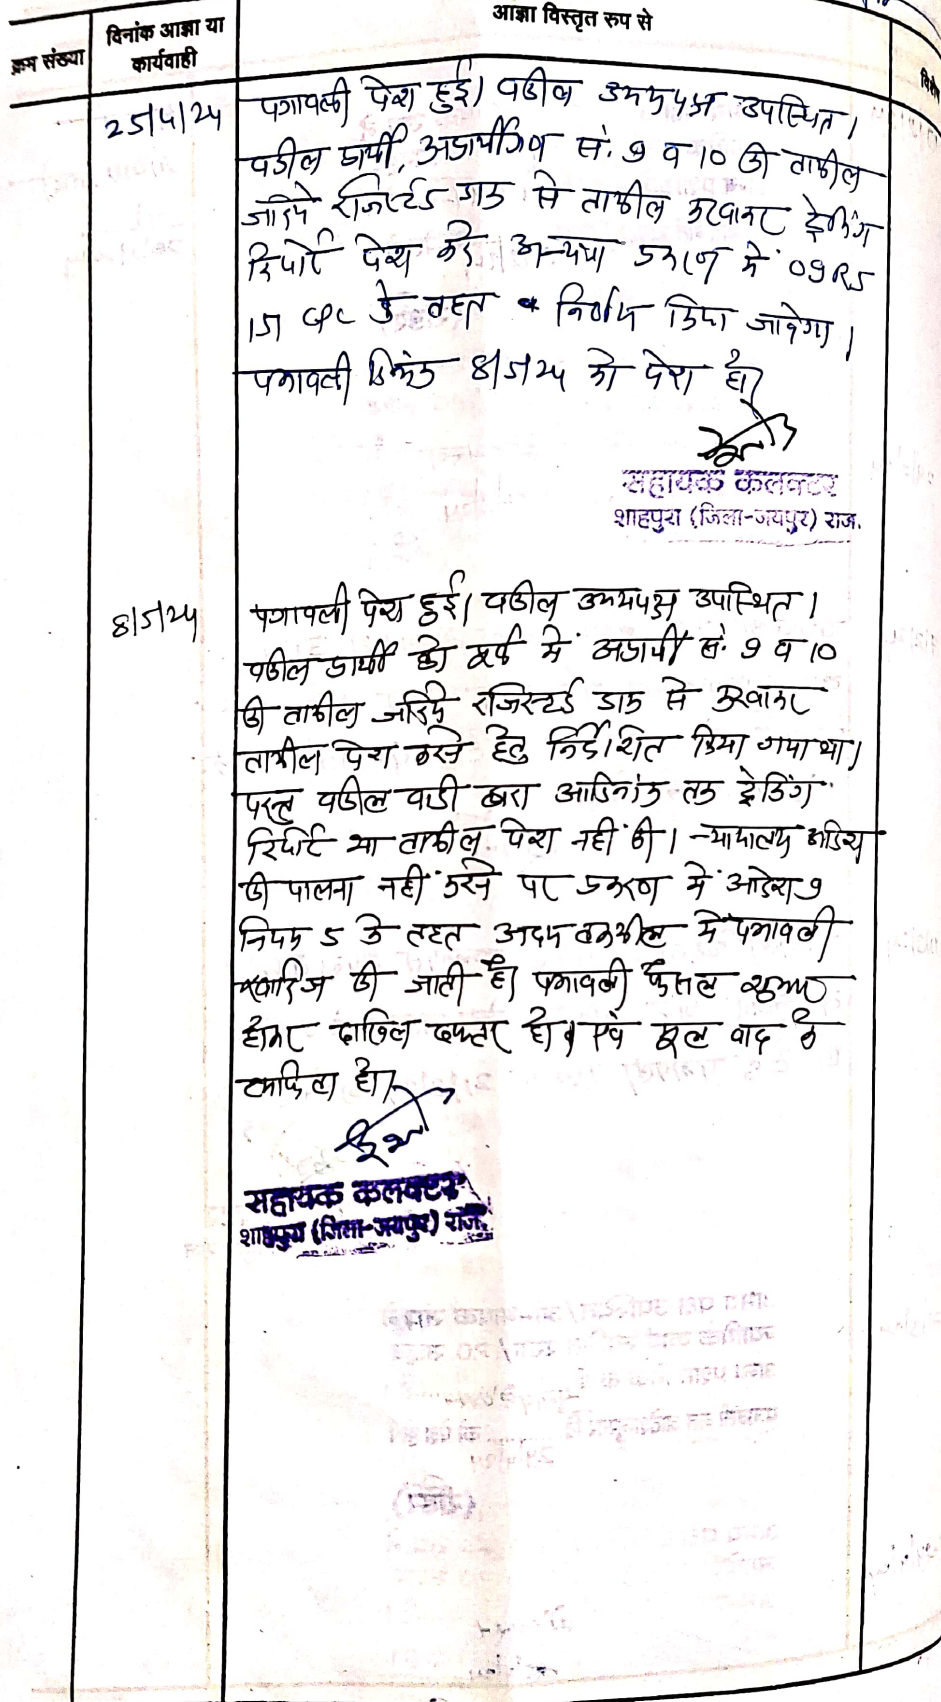 क्रम संख्या
दिनांक आज्ञा या
कार्यवाही
आज्ञा विस्तृत रुप से
25/4/24
पत्रावली पेश हुई। वकील उभयपक्ष उपस्थित।
वकील प्रार्थी, अप्रार्थीगण सं. 9 व 10 की तामील
जरिये रजिस्टर्ड डाक से तामील करवाकर ट्रेकिंग
रिपोर्ट पेश करे अन्यथा प्रकरण में 09R5
CPC के तहत निर्णय किया जावेगा।
पत्रावली दिनांक 8/5/24 को पेश हो।
सहायक कलक्टर
शाहपुरा (जिला-जयपुर) राज.
8/5/24
पत्रावली पेश हुई। वकील उभयपक्ष उपस्थित।
वकील प्रार्थी को पूर्व में अप्रार्थी सं. 9 व 10
की तामील जरिये रजिस्टर्ड डाक से करवाकर
तामील पेश करने हेतु निर्देशित किया गया था।
परन्तु वकील वादी द्वारा आदिनांक तक ट्रेकिंग
रिपोर्ट या तामील पेश नहीं की। न्यायालय आदेश
की पालना नहीं करने पर प्रकरण में आदेश 9
नियम 5 के तहत अदम तकमील में पत्रावली
खारिज की जाती है। पत्रावली फैसल शुमार
होकर दाखिल दफ्तर हो। एवं मूल वाद के
हो।
सहायक कलक्टर
शाहपुरा (जिला-जयपुर) राज.